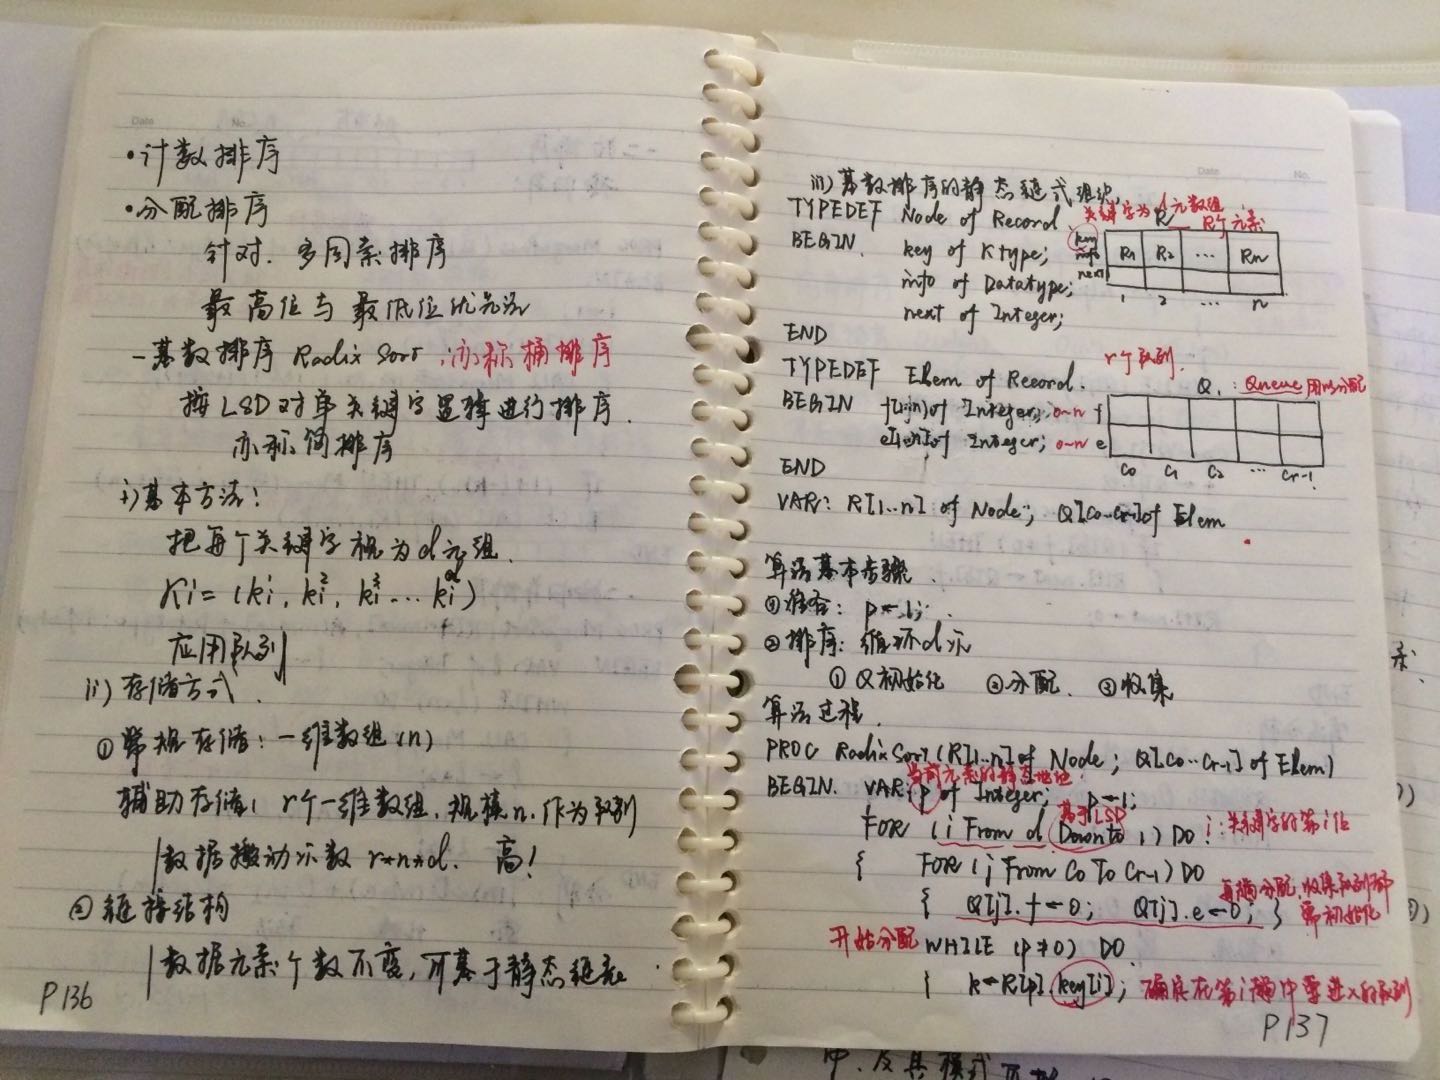 Date No.
·计数排序
·分配排序
针对.多因素排序
最高位与最低位优先法
-基数排序 Radix Sort,亦称桶排序
按LSD对单关键字逻辑进行排序.
亦称筒排序
i)基本方法:
把每个关键字视为d元组.
Ki=(ki, ki², ki³... kiᵈ)
应用队列
ii)存储方式.
①常规存储:一维数组(n)
辅助存储:r个一维数组,规模n,作为队列
数据搬动次数r*n*d. 高!
②链接结构
数据元素个数不变,可基于静态链表.
P136
Date No.
iii)基数排序的静态链式组织,
关键字为d元数组
TYPEDEF Node of Record
R R个元素
BEGIN. key of Ktype;
info of Datatype;
next of Integer;
END
key
info
next
R1 R2 ... Rn
1 2 ... n
r个队列.
TYPEDEF Elem of Record.
Q.:Queue用以分配
BEGIN f[1:n] of Integer; 0~n f
e[1:n] of Integer; 0~n e
END
C0 C1 C2 ... Cr-1
VAR: R[1..n] of Node; Q[C0..Cr-1] of Elem
算法基本步骤.
①准备: p←1;
②排序:循环d次
①Q初始化 ②分配. ③收集
算法过程.
PROC RadixSort(R[1..n] of Node; Q[C0..Cr-1] of Elem)
当前元素的静态地址.
BEGIN. VAR: p of Integer; p←1;
基于LSD
FOR (i From d Downto 1) DO i:关键字的第i位
{ FOR (j From C0 To Cr-1) DO
{ Q[j].f←0; Q[j].e←0; }
每趟分配,收集队列都
需初始化
开始分配 WHILE (p≠0) DO
{ k←R[p].key[i]; 确定在第i趟中要进入的队列
P137